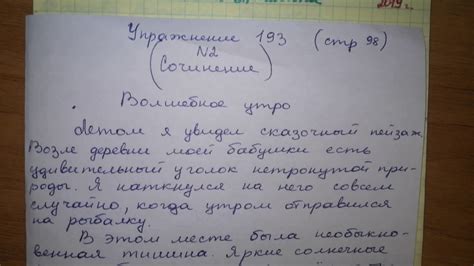 2019 г.
Упражнение 193 (стр 98)
№2
(Сочинение)
Волшебное утро
Летом я увидел сказочный пейзаж.
Возле деревни моей бабушки есть
удивительный уголок нетронутой при-
роды. Я наткнулся на него совсем
случайно, когда утром отправился
на рыбалку.
В этом месте была необыкно-
венная тишина. Яркие солнечные